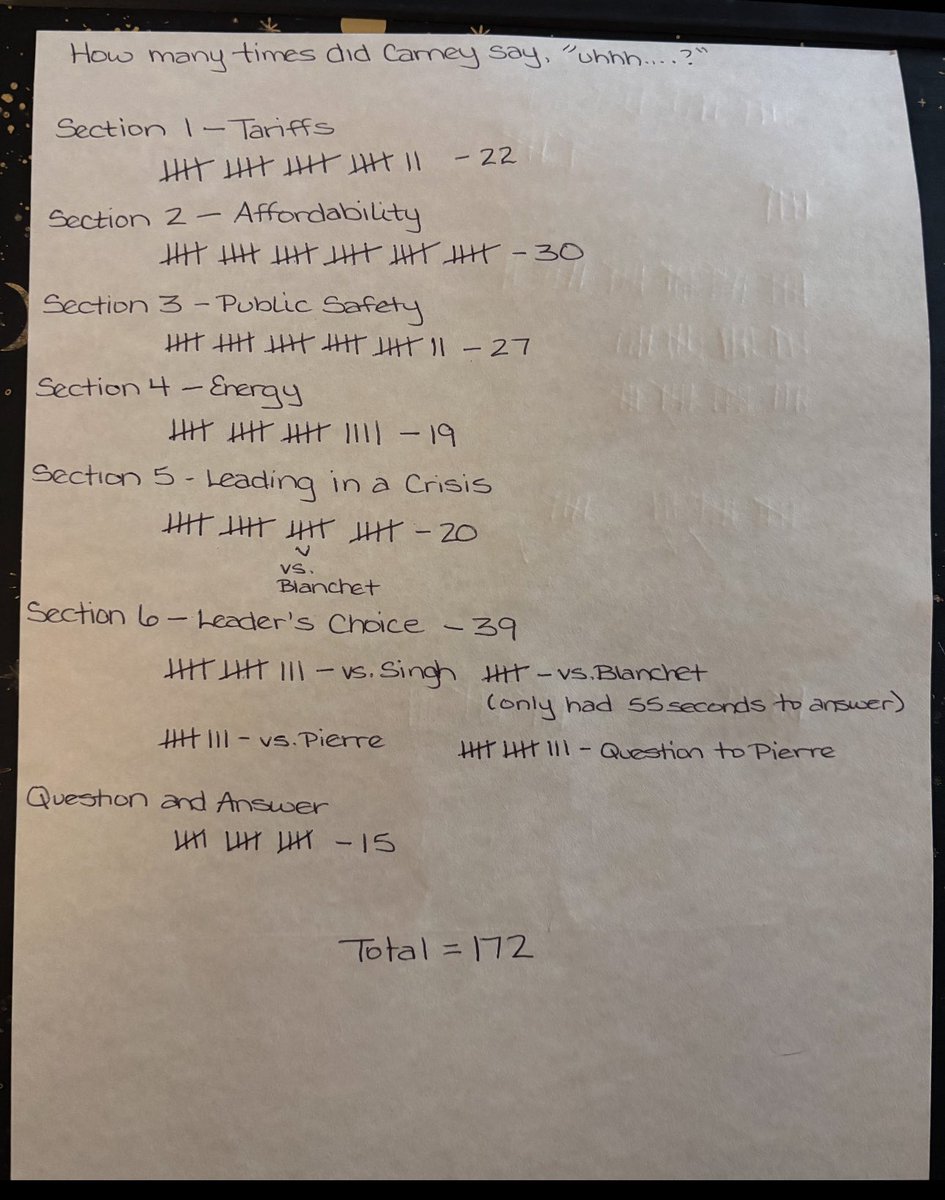 How many times did Carney say, "uhhh....?"
Section 1 - Tariffs
- 22
Section 2 - Affordability
- 30
Section 3 - Public Safety
- 27
Section 4 - Energy
- 19
Section 5 - Leading in a Crisis
- 20
vs.
Blanchet
Section 6 - Leader's Choice - 39
- vs. Singh - vs. Blanchet
(only had 55 seconds to answer)
- vs. Pierre
- Question to Pierre
Question and Answer
- 15
Total = 172